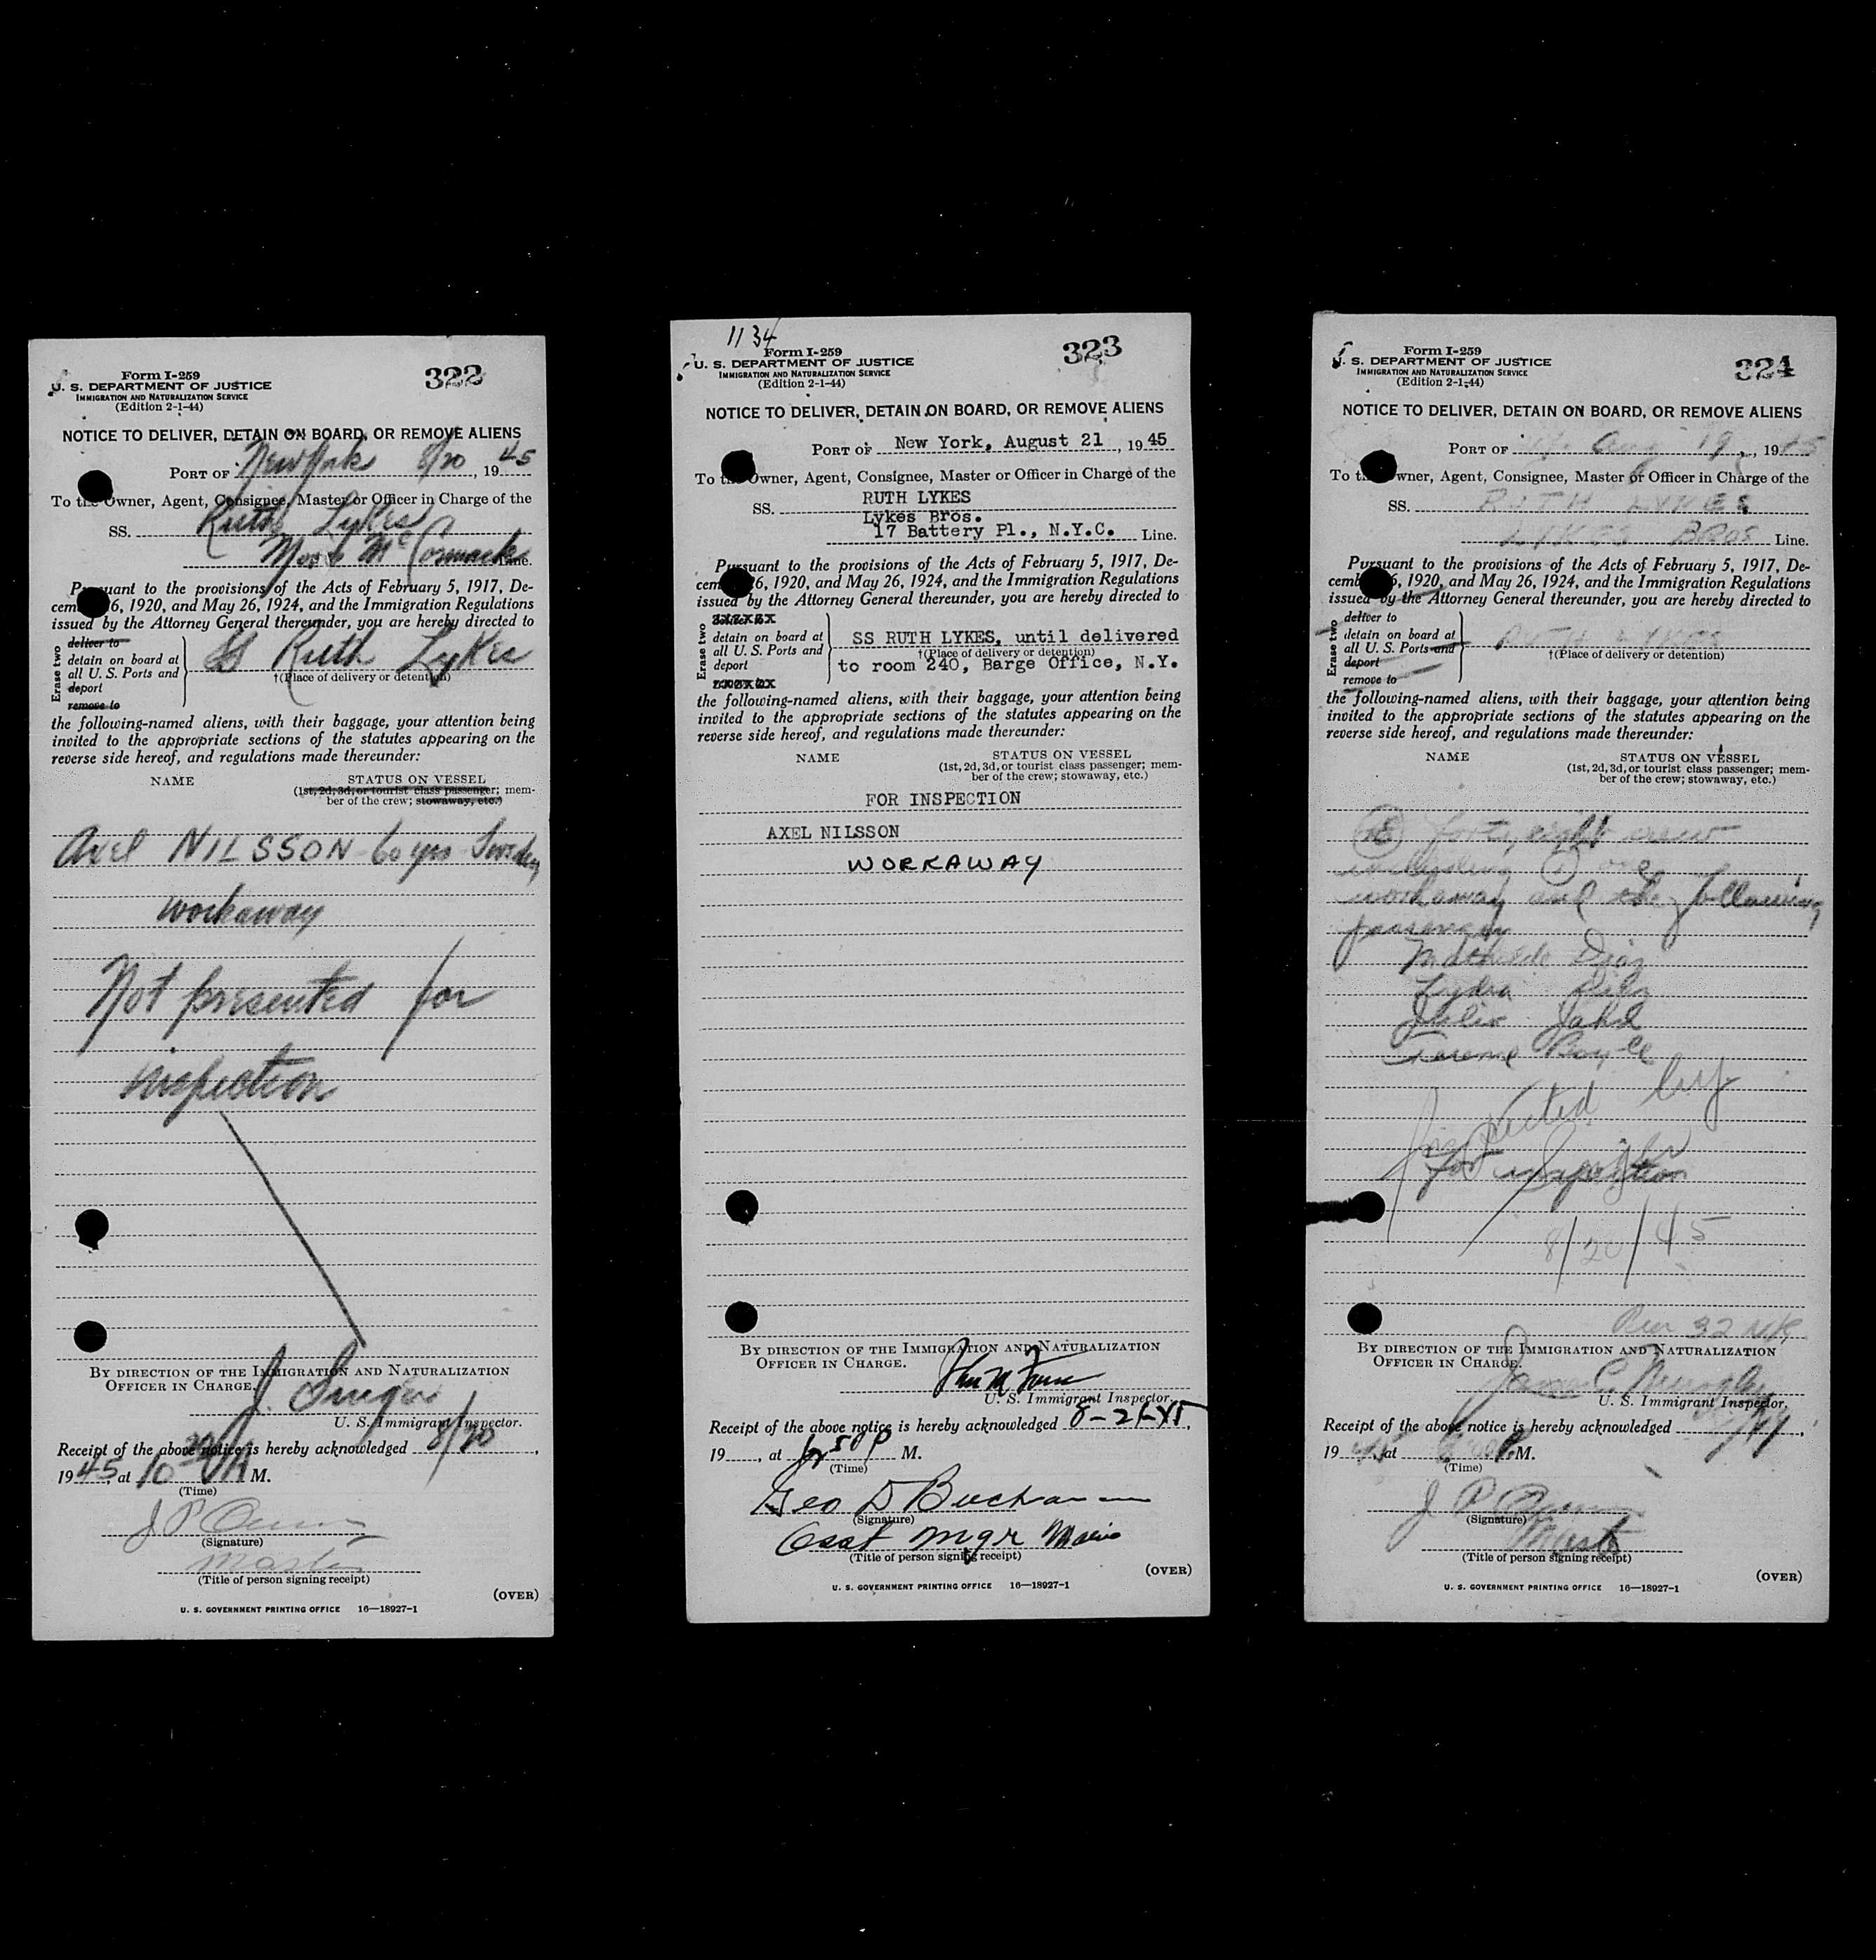 Form I-259
U. S. DEPARTMENT OF JUSTICE
IMMIGRATION AND NATURALIZATION SERVICE
(Edition 2-1-44)
322
NOTICE TO DELIVER, DETAIN ON BOARD, OR REMOVE ALIENS
PORT OF New York 8/20, 1945
To the Owner, Agent, Consignee, Master or Officer in Charge of the
SS. Ruth Lykes
Moore McCormack Line.
Pursuant to the provisions of the Acts of February 5, 1917, De-
cember 26, 1920, and May 26, 1924, and the Immigration Regulations
issued by the Attorney General thereunder, you are hereby directed to
Erase two
deliver to
detain on board at
all U. S. Ports and
deport
remove to
SS Ruth Lykes
†(Place of delivery or detention)
the following-named aliens, with their baggage, your attention being
invited to the appropriate sections of the statutes appearing on the
reverse side hereof, and regulations made thereunder:
NAME STATUS ON VESSEL
(1st, 2d, 3d, or tourist class passenger; mem-
ber of the crew; stowaway, etc.)
Axel NILSSON - 60 yrs - Sweden
workaway
Not presented for
inspection
BY DIRECTION OF THE IMMIGRATION AND NATURALIZATION
OFFICER IN CHARGE.
J.
U. S. Immigrant Inspector.
Receipt of the above notice is hereby acknowledged 8/20,
1945, at 10 A M.
(Time)
J P
(Signature)
Master
(Title of person signing receipt)
(OVER)
U. S. GOVERNMENT PRINTING OFFICE 16—18927-1
1134
Form I-259
U. S. DEPARTMENT OF JUSTICE
IMMIGRATION AND NATURALIZATION SERVICE
(Edition 2-1-44)
323
NOTICE TO DELIVER, DETAIN ON BOARD, OR REMOVE ALIENS
PORT OF New York, August 21, 1945
To the Owner, Agent, Consignee, Master or Officer in Charge of the
RUTH LYKES
SS.
Lykes Bros.
17 Battery Pl., N.Y.C. Line.
Pursuant to the provisions of the Acts of February 5, 1917, De-
cember 26, 1920, and May 26, 1924, and the Immigration Regulations
issued by the Attorney General thereunder, you are hereby directed to
Erase two
detain on board at
all U. S. Ports and
deport
SS RUTH LYKES, until delivered
†(Place of delivery or detention)
to room 240, Barge Office, N.Y.
the following-named aliens, with their baggage, your attention being
invited to the appropriate sections of the statutes appearing on the
reverse side hereof, and regulations made thereunder:
NAME STATUS ON VESSEL
(1st, 2d, 3d, or tourist class passenger; mem-
ber of the crew; stowaway, etc.)
FOR INSPECTION
AXEL NILSSON
WORKAWAY
BY DIRECTION OF THE IMMIGRATION AND NATURALIZATION
OFFICER IN CHARGE.
U. S. Immigrant Inspector.
Receipt of the above notice is hereby acknowledged 8-21-45,
19, at 50 P M.
(Time)
Geo D Buchanan
(Signature)
Asst Mgr
(Title of person signing receipt)
(OVER)
U. S. GOVERNMENT PRINTING OFFICE 16—18927-1
Form I-259
U. S. DEPARTMENT OF JUSTICE
IMMIGRATION AND NATURALIZATION SERVICE
(Edition 2-1-44)
324
NOTICE TO DELIVER, DETAIN ON BOARD, OR REMOVE ALIENS
PORT OF Aug 19, 1945
To the Owner, Agent, Consignee, Master or Officer in Charge of the
SS. RUTH LYKES
LYKES BROS Line.
Pursuant to the provisions of the Acts of February 5, 1917, De-
cember 26, 1920, and May 26, 1924, and the Immigration Regulations
issued by the Attorney General thereunder, you are hereby directed to
Erase two
deliver to
detain on board at
all U. S. Ports and
deport
remove to
RUTH LYKES
†(Place of delivery or detention)
the following-named aliens, with their baggage, your attention being
invited to the appropriate sections of the statutes appearing on the
reverse side hereof, and regulations made thereunder:
NAME STATUS ON VESSEL
(1st, 2d, 3d, or tourist class passenger; mem-
ber of the crew; stowaway, etc.)
(48) forty eight crew
including (1) one
workaway and the following
passengers
Diaz
Lydia
Julio
for inspection
Inspected by
8/20/45
Pier 32
BY DIRECTION OF THE IMMIGRATION AND NATURALIZATION
OFFICER IN CHARGE.
James C.
U. S. Immigrant Inspector.
Receipt of the above notice is hereby acknowledged
1945 at P M.
(Time)
J P
(Signature)
Master
(Title of person signing receipt)
(OVER)
U. S. GOVERNMENT PRINTING OFFICE 16—18927-1